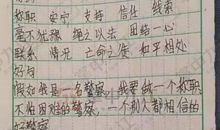 称职 安宁 支持 信任 线索
毫不犹豫 绳之以法 团结一心
联系 情况 亡命之徒 和平相处
好句
假如我是一名警察，我要做一个称职
不怕困难的警察，一个别人都相信的
好警察